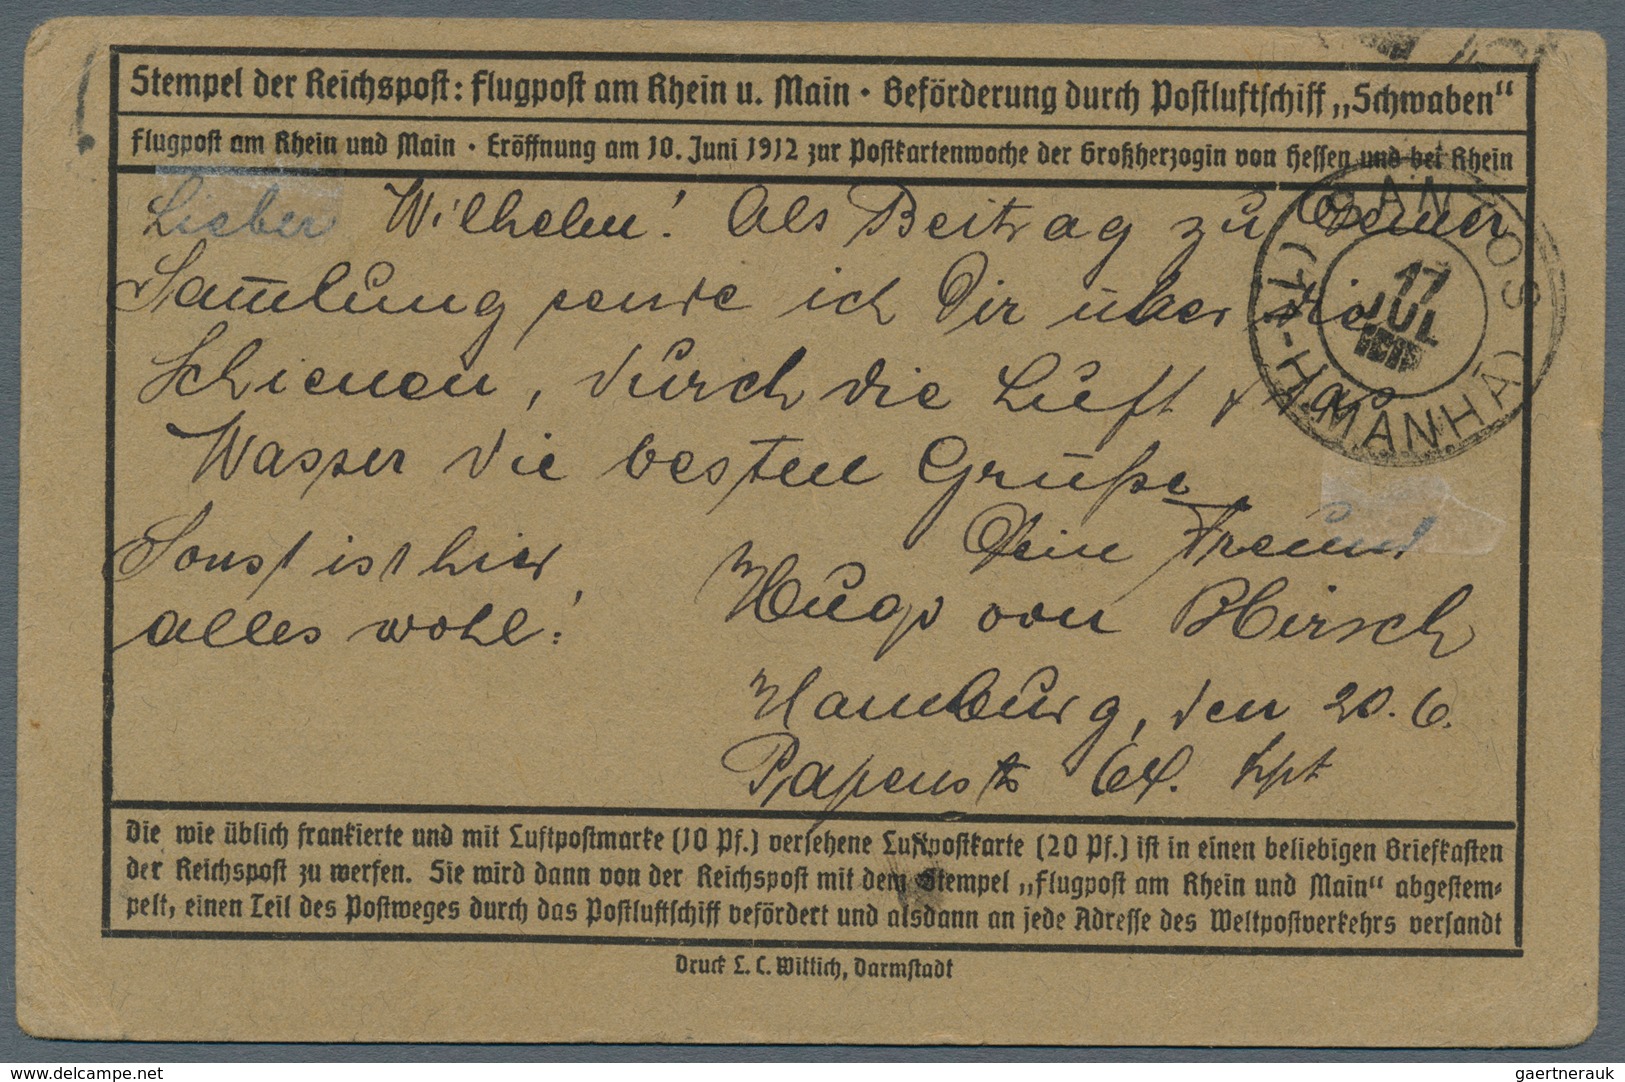 Stempel der Reichspost: Flugpost am Rhein u. Main · Beförderung durch Postluftschiff „Schwaben“
Flugpost am Rhein und Main · Eröffnung am 10. Juni 1912 zur Postkartenwoche der Großherzogin von Hessen und bei Rhein
Lieber Wilhelm! Als Beitrag zu Deiner
Sam̅lung sende ich Dir über die
Schienen, durch die Luft & das
Wasser die besten Grüße.
Dein Freund
Sonst ist hier
Hugo von Hirsch
alles wohl!
Hamburg, den 20. 6.
Papenstr 64. hpt
SANTOS
17
JUL
(7ª-H.MANHÃ)
Die wie üblich frankierte und mit Luftpostmarke (10 Pf.) versehene Luftpostkarte (20 Pf.) ist in einen beliebigen Briefkasten
der Reichspost zu werfen. Sie wird dann von der Reichspost mit dem Stempel „Flugpost am Rhein und Main“ abgestem-
pelt, einen Teil des Postweges durch das Postluftschiff befördert und alsdann an jede Adresse des Weltpostverkehrs versandt
Druck L. C. Wittich, Darmstadt
delcampe.net
gaertnerauk